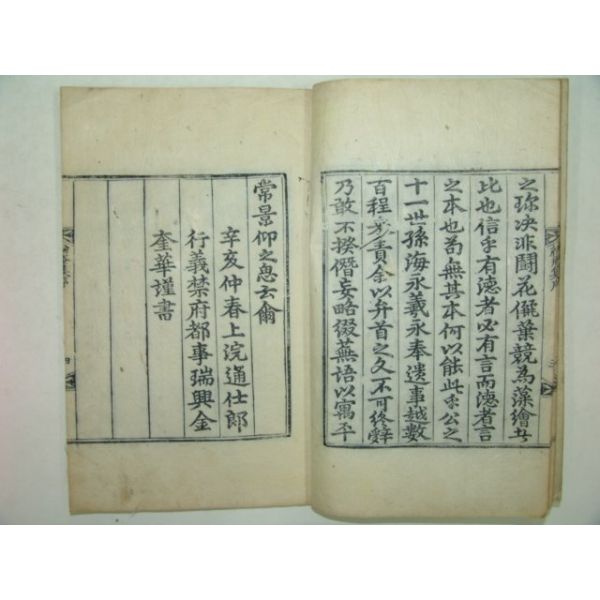 之珎决非鬪花儷葉競為藻繪者
比也信乎有德者必有言而德者言
之本也苟無其本何以能此乎公之
十一世孫海永羲永奉遺事越數
百程步責余以弁首之文不可終辭
乃敢不揆僭妄略綴蕪語以寓平
常景仰之忱云爾
辛亥仲春上浣通仕郎
行義禁府都事瑞興金
奎華謹書